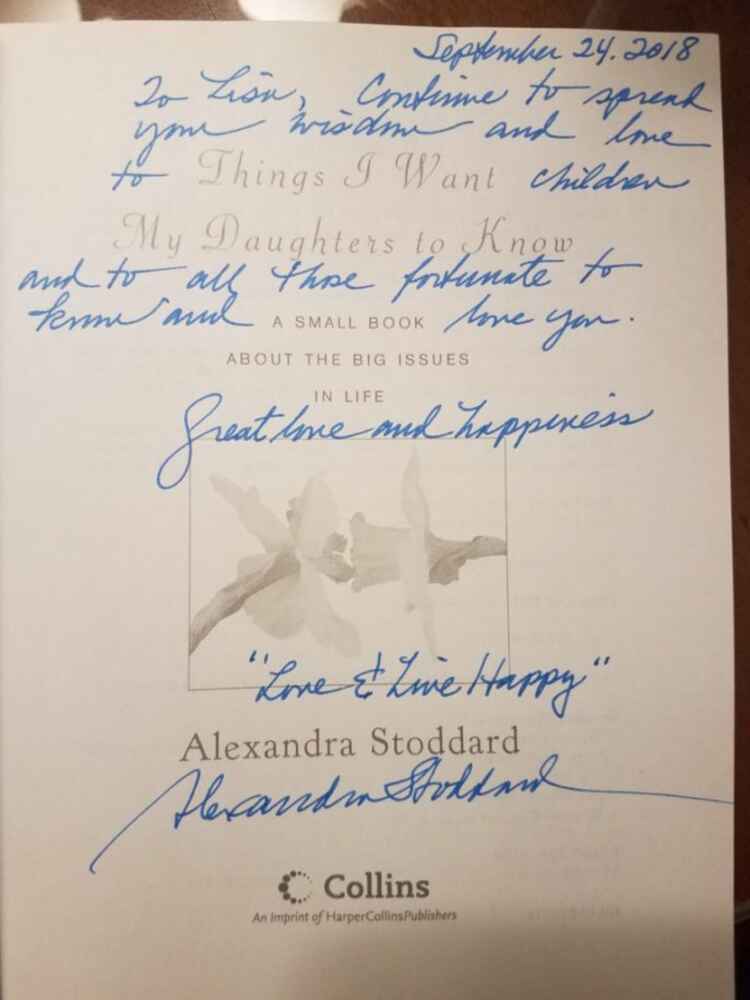 September 24. 2018
To Lisa, Continue to spread
your wisdom and love
to Things I Want children
My Daughters to Know
and to all those fortunate to
know and A SMALL BOOK love you.
ABOUT THE BIG ISSUES
IN LIFE
Great love and happiness
"Love & Live Happy"
Alexandra Stoddard
Alexandra Stoddard
Collins
An Imprint of HarperCollinsPublishers